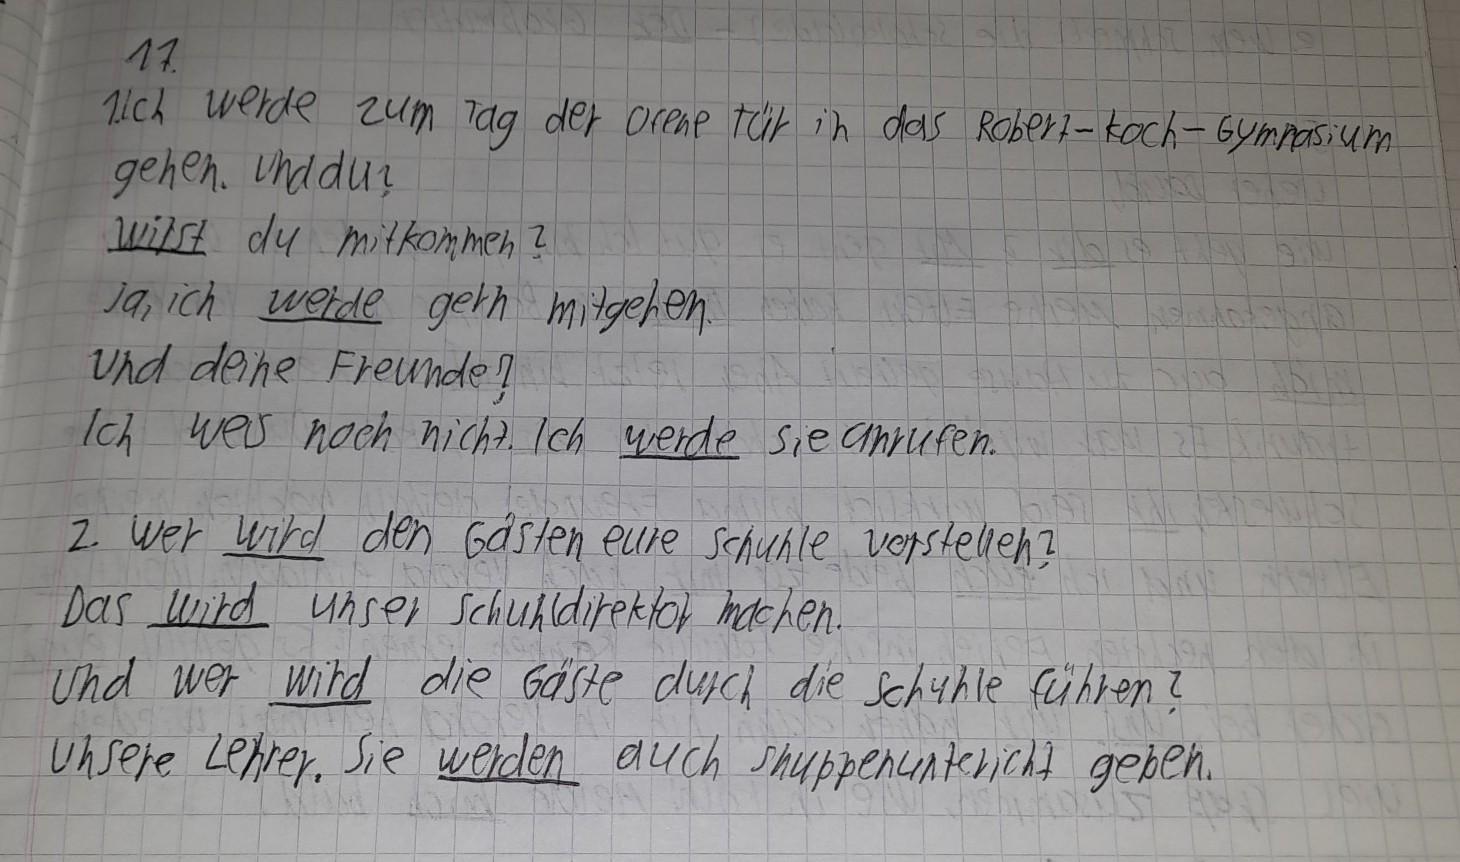 17.
1.Ich werde zum Tag der ofene Tür in das Robert-Koch-Gymnasium
gehen. Und du?
Wirst du mitkommen?
Ja, ich werde gern mitgehen.
Und deine Freunde?
Ich weis noch nicht. Ich werde sie anrufen.
2. Wer wird den Gästen eure Schuhle vorstellen?
Das wird unser Schuhldirektor machen.
Und wer wird die Gäste durch die Schuhle führen?
Unsere Lehrer. Sie werden auch Snuppenuntericht geben.